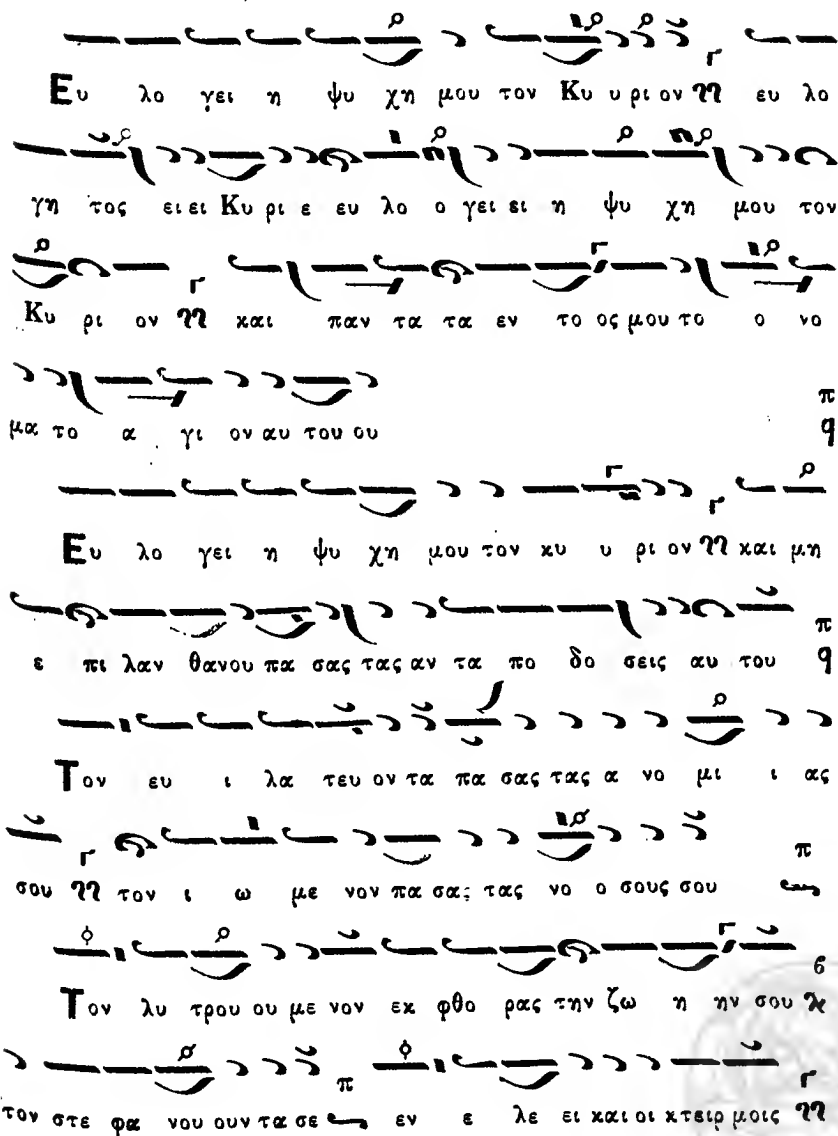 Ευ λο γει η ψυ χη μου τον Κυ υ ρι ον ευ λο
γη τος ει ει Κυ ρι ε ευ λο ο γει ει η ψυ χη μου τον
Κυ ρι ον και παν τα τα εν το ος μου το ο νο
μα το α γι ον αυ του ου π q
Ευ λο γει η ψυ χη μου τον κυ υ ρι ον και μη
ε πι λαν θανου πα σας τας αν τα πο δο σεις αυ του π q
Τον ευ ι λα τευ ον τα πα σας τας α νο μι ι ας
σου τον ι ω με νον πα σας τας νο ο σους σου π
Τον λυ τρου ου με νον εκ φθο ρας την ζω η ην σου
τον στε φα νου ουν τα σε π εν ε λε ει και οι κτειρ μοις